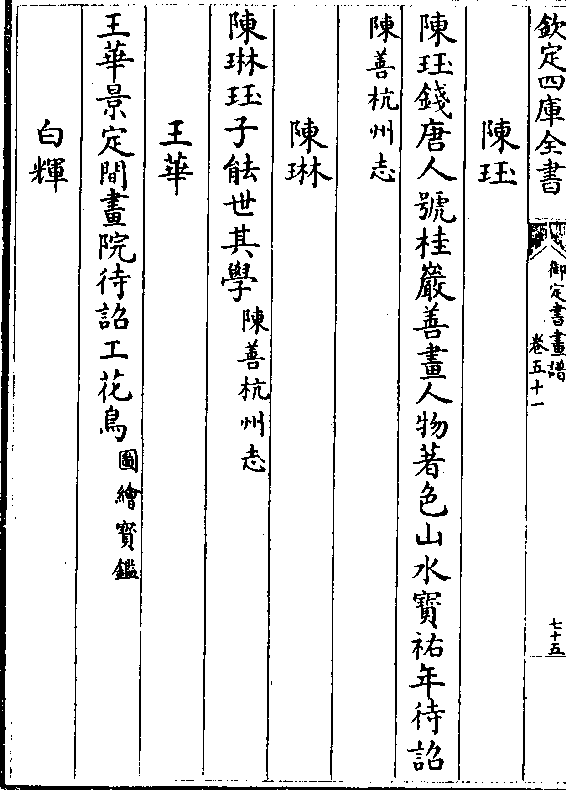 欽定四庫全書
御定書畫譜
卷五十一
七十五
陳珏
陳珏錢唐人號桂巖善畫人物著色山水寳祐年待詔
陳善杭州志
陳琳
陳琳珏子能世其學陳善杭州志
王華
王華景定間畫院待詔工花鳥圖繪寳鑑
白輝